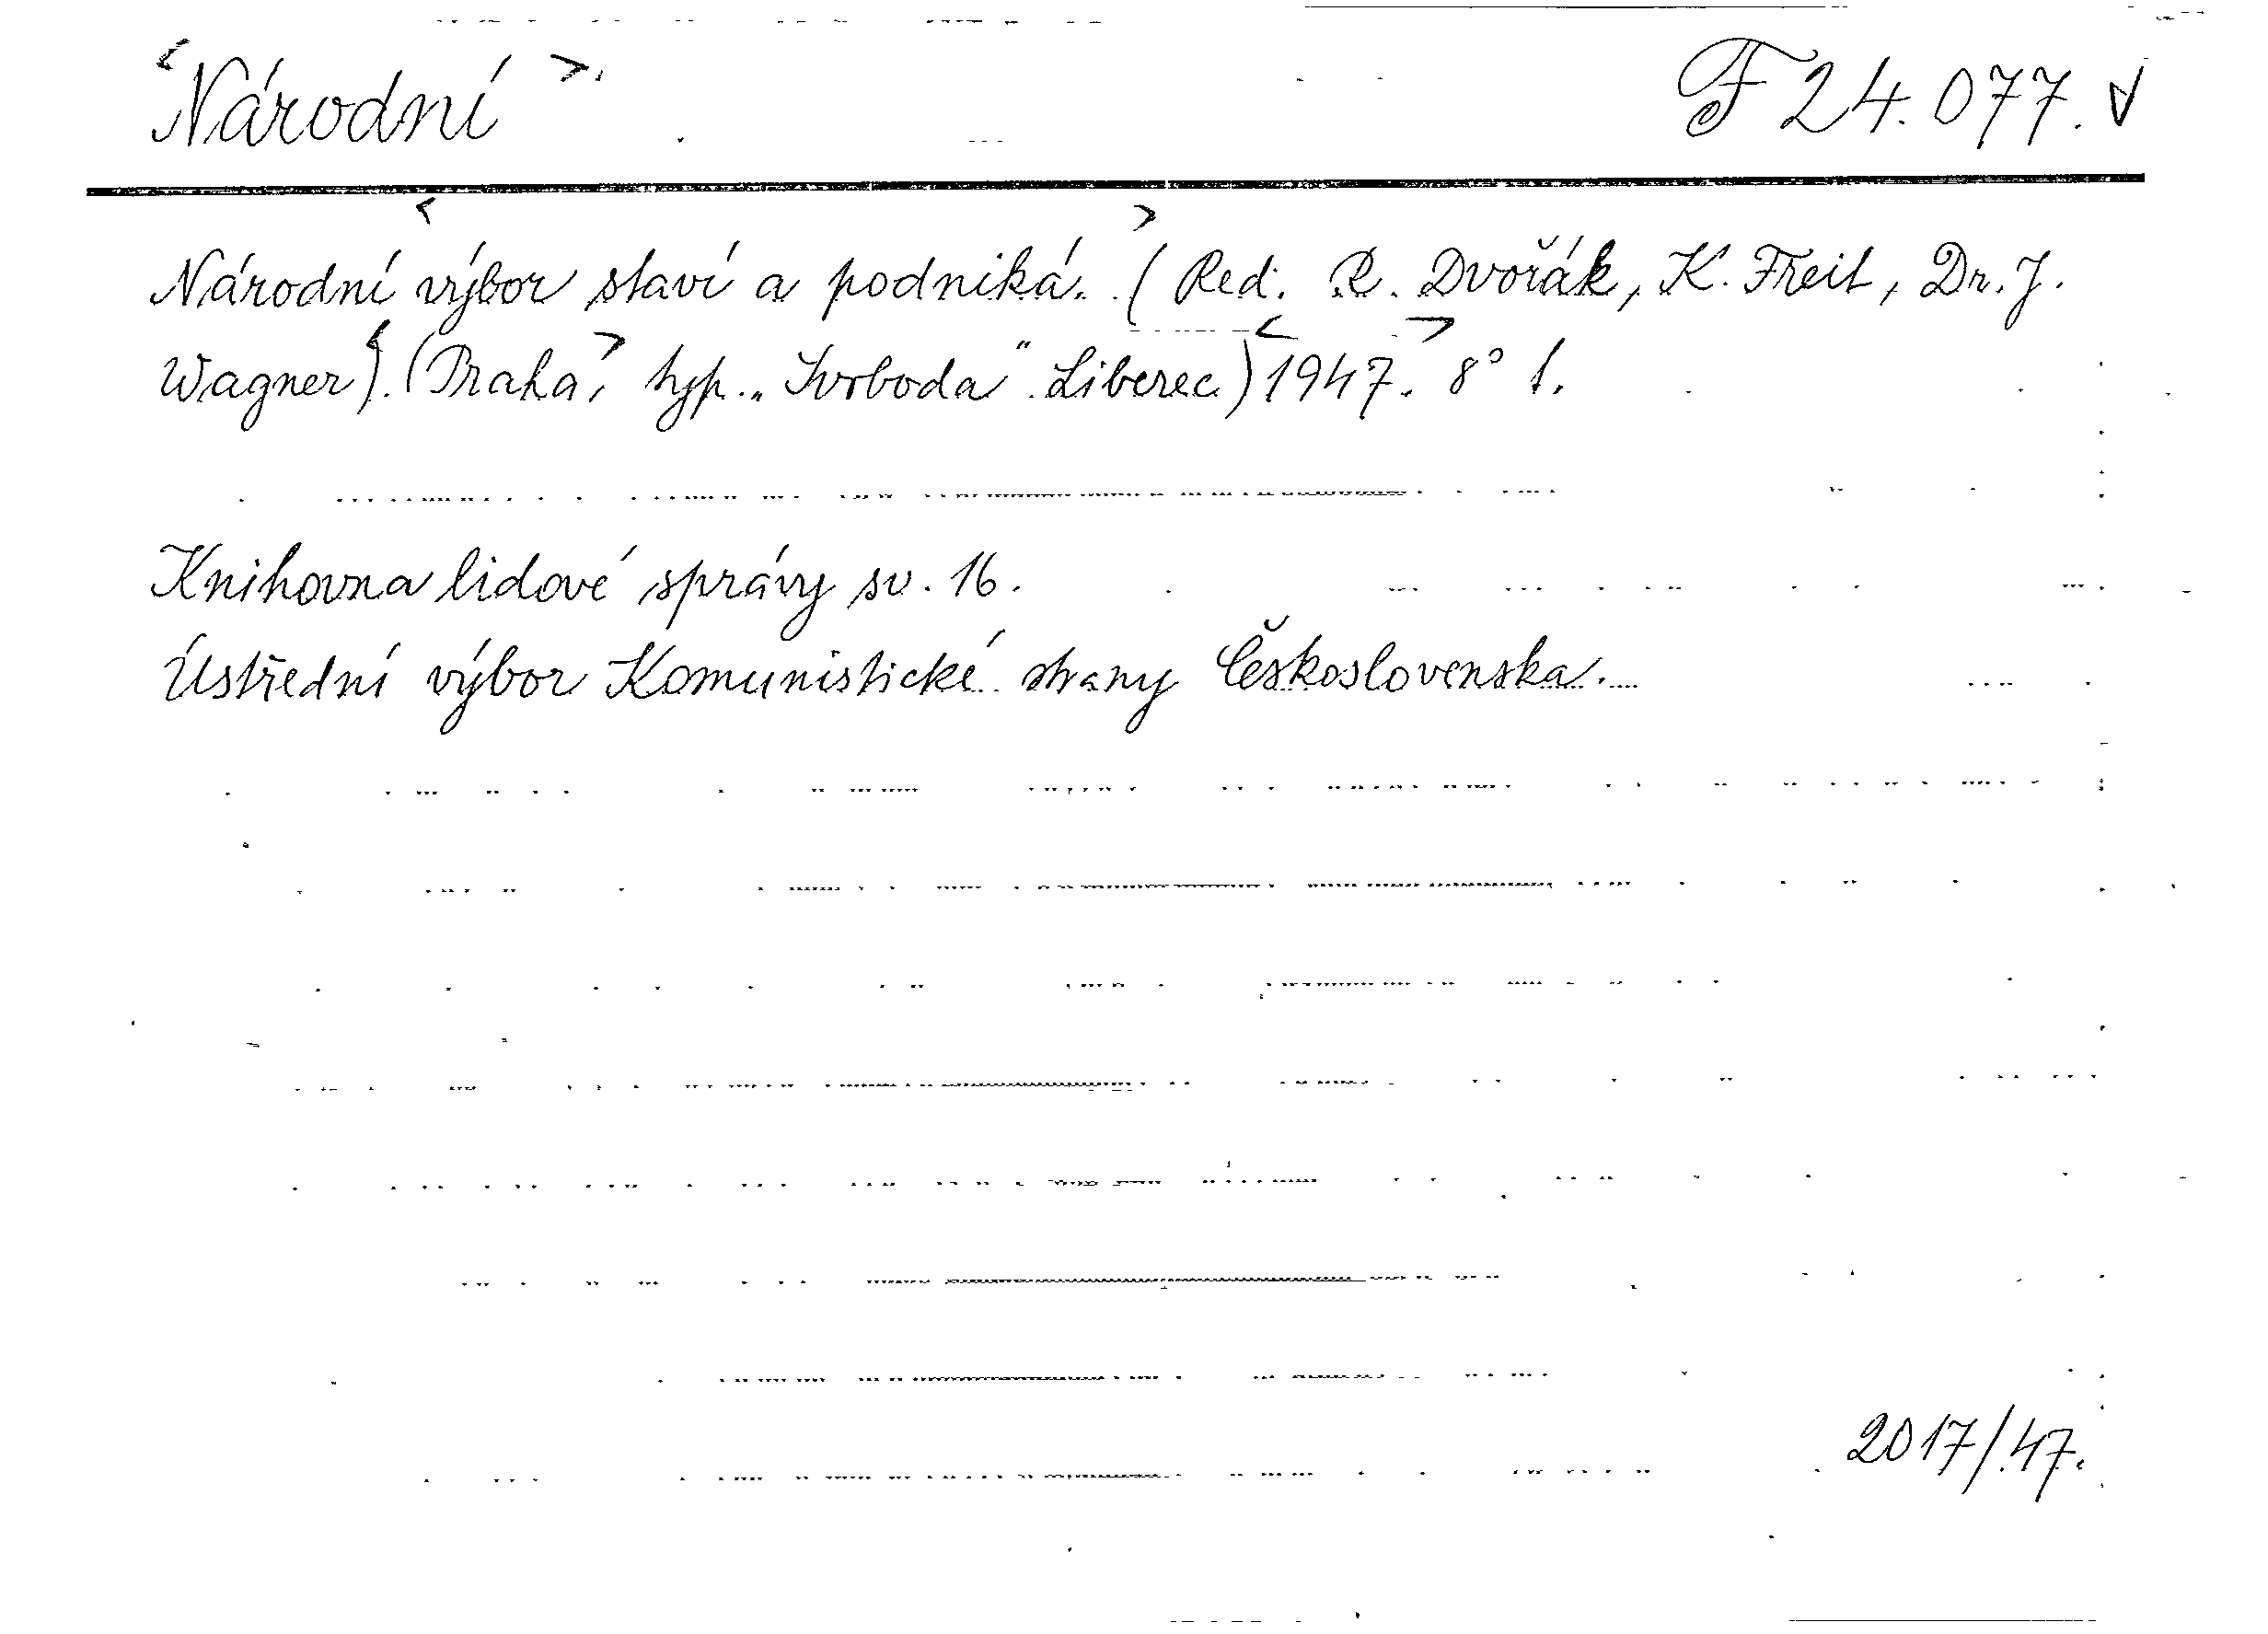 <Národní>. F 24.077. V
Národní <výbor staví a podniká.> (Red. R. Dvořák, K. Freit, Dr. J.
Wagner). <(Praha,> typ. „Svoboda“ Liberec) <1947.> 8° 1.
Knihovna lidové správy sv. 16.
Ústřední výbor Komunistické strany Československa.
2017/47.